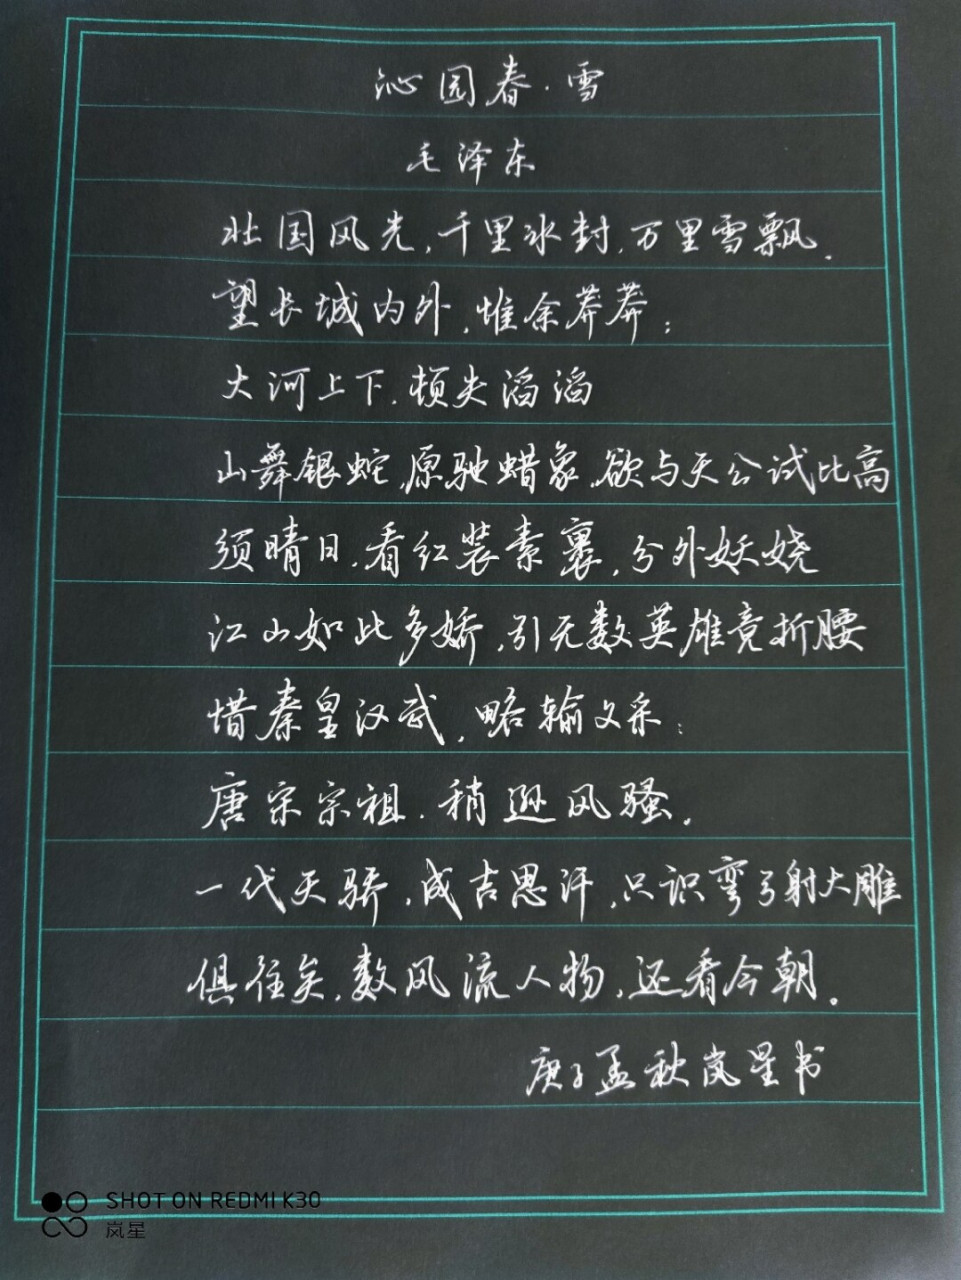 沁园春·雪
毛泽东
北国风光,千里冰封,万里雪飘.
望长城内外,惟余莽莽;
大河上下.顿失滔滔
山舞银蛇,原驰蜡象,欲与天公试比高
须晴日,看红装素裹,分外妖娆
江山如此多娇,引无数英雄竟折腰
惜秦皇汉武,略输文采;
唐宋宗祖.稍逊风骚.
一代天骄,成吉思汗,只识弯弓射大雕
俱往矣,数风流人物,还看今朝.
庚子孟秋岚星书
SHOT ON REDMI K30
岚星